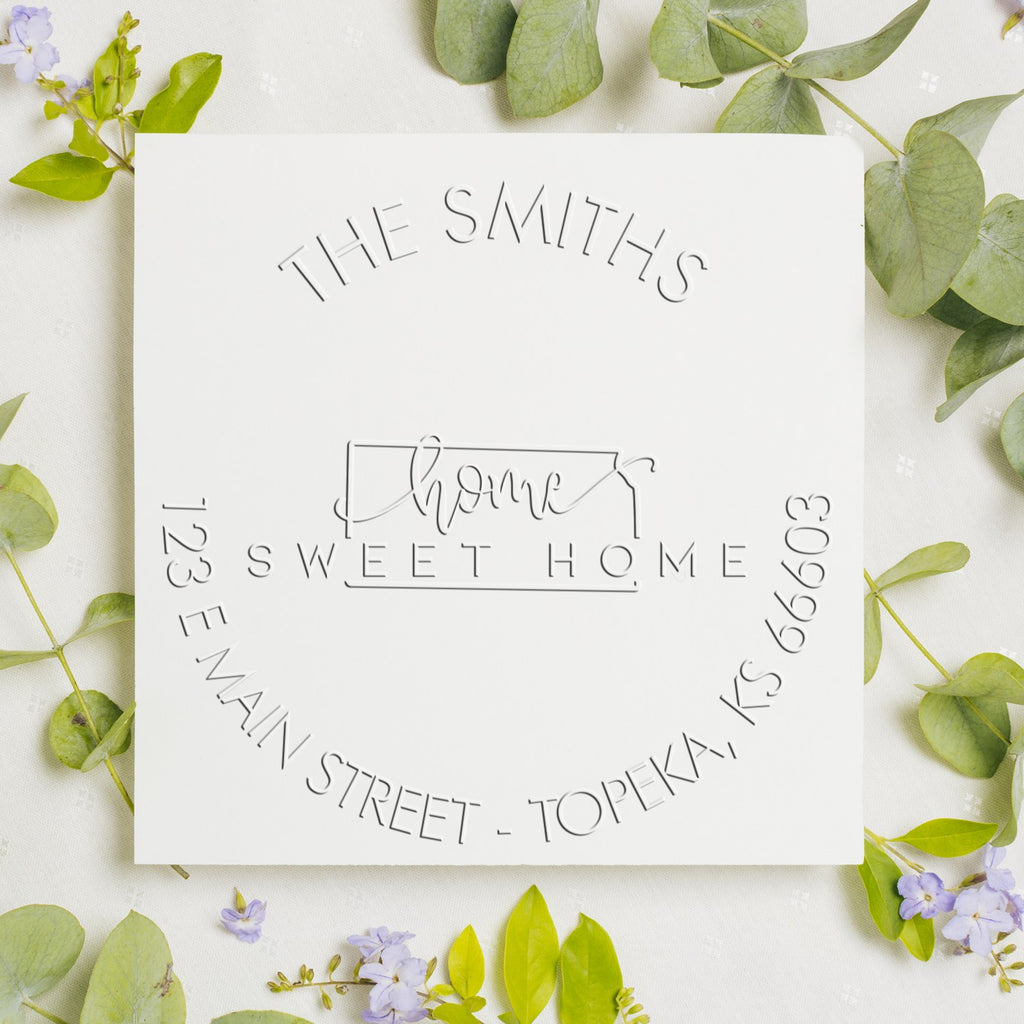 THE SMITHS
home
SWEET HOME
123 E MAIN STREET - TOPEKA, KS 66603